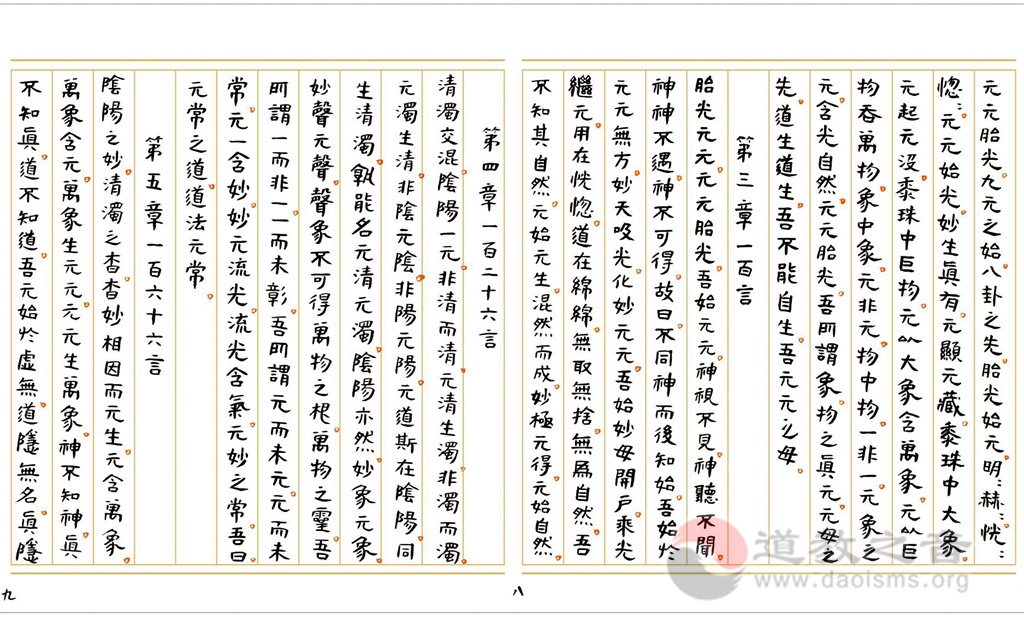 元元胎光九元之始八卦之先胎光始元明〻赫〻恍〻
惚〻元元始光妙生眞有元顯元藏黍珠中大象
元起元沒黍珠中巨物元以大象含萬象元以巨
物吞萬物象中象元非元物中物一非一元象之
元含光自然元元胎光吾所謂象物之眞元元母之
先道生道生吾不能自生吾元元之母
第三章一百言
胎光元元元元胎光吾始元元神視不見神聽不聞
神神不遇神不可得故曰不同神而後知始吾始於
元元無方妙天吸光化妙元元吾始妙母開戶乘光
繼元用在恍惚道在綿綿無取無捨無爲自然吾
不知其自然元始元生混然而成妙極元得元始自然
八
第四章一百二十六言
清濁交混陰陽一元非清而清元清生濁非濁而濁
元濁生清非陰元陰非陽元陽元道斯在陰陽同
生清濁孰能名元清元濁陰陽亦然妙象元象
妙聲元聲聲象不可得萬物之根萬物之靈吾
所謂一而非一一而未彰吾所謂元而未元元而未
常元一含妙妙元流光流光含氣元妙之常吾曰
元常之道道法元常
第五章一百六十六言
陰陽之妙清濁之杳杳妙相因而元生元含萬象
萬象含元萬象生元元元生萬象神不知神眞
不知眞道不知道吾元始於虛無道隱無名眞隱
九
道教之音
www.daoisms.org